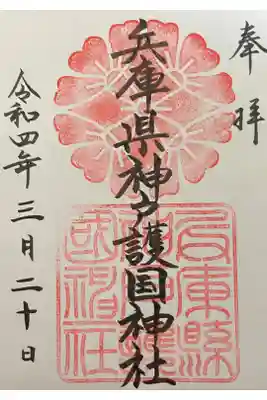 奉拝
兵庫県神戸護国神社
令和四年三月二十日
兵庫縣
神戸護
國神社